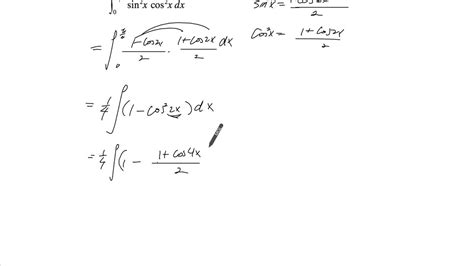 ∫ sin²x cos²x dx
sin²x = (1-cos2x)/2
cos²x = (1+cos2x)/2
= ∫₀ (1-cos2x)/2 · (1+cos2x)/2 dx
= 1/4 ∫ (1 - cos²2x) dx
= 1/4 ∫ (1 - (1+cos4x)/2